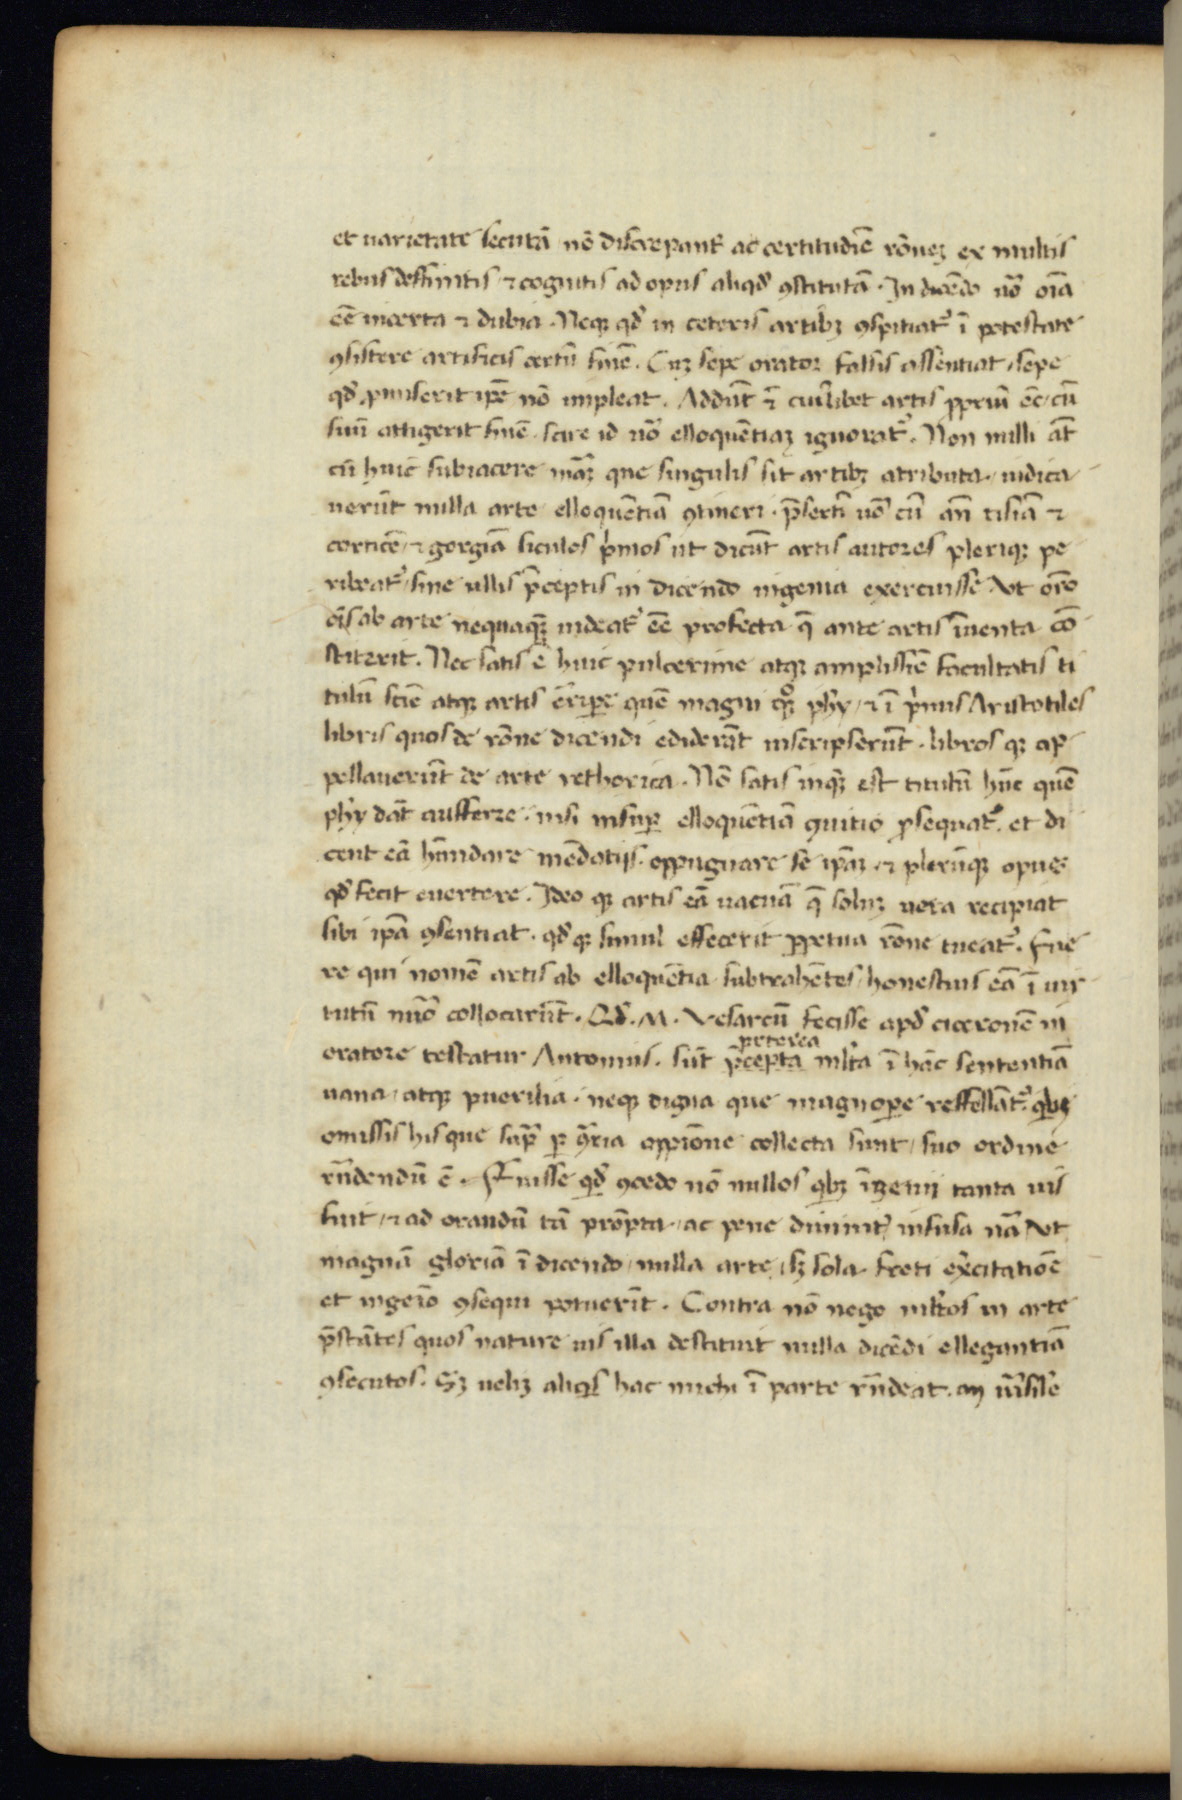 et uarietate secutã nõ discrepant ac certitudiẽ rõneꝫ ex multis
rebus deffinitis ⁊ cognitis ad opus aliqđ ꝯstitutã. In dicẽdo uõ oĩa
eẽ incerta ⁊ dubia. Neqꝫ qđ in ceteris artibꝫ ꝯspitiatᷣ ĩ potestate
ꝯsistere artificis certũ finẽ. Cuꝫ sepe orator falsis assentiat, sepe
qđ ꝓmiserit ip̃e nõ impleat. Addũt ⁊ cuilibet artis ꝓpriũ eẽ cũ
suũ attigerit finẽ scire id uõ elloquẽtiaꝫ ignoratᷣ. Non nulli aũt
cũ huic subiacere mãꝫ que singulis sit artibꝫ atributa. iudica
uerũt nulla arte elloquẽtiã ꝯtineri. p̃sertĩ uõ cũ an̄ tisiã ⁊
corticẽ ⁊ gorgiã siculos p̃mos ut dicũt artis autores pleriqꝫ pe
ribeatᷣ sine ullis p̃ceptis in dicendo ingenia exercuisse ut orõ
oĩs ab arte nequaqꝫ uideatᷣ eẽ profecta q̃ ante artis ĩuenta cõ
stiterit. Nec satis ẽ huic pulcerime atqꝫ amplissiẽ facultatis ti
tulũ sciẽ atqꝫ artis eripe quẽ magni qꝫ phỹ ⁊ ĩ p̃mis Aristotiles
libris quos de rõne dicendi ediderũt inscripserũt. libros qꝫ ap
pellauerũt de arte rethorica. Nõ satis inqꝫ est titulũ hũc quẽ
phỹ dãt aufferre. nisi insuꝑ elloquẽtiã ꝯuitio ꝓsequatᷣ. et di
cent eã mẽdatijs. oppugnare se ip̃aꝫ ⁊ plerũqꝫ opus
qđ fecit euertere. Ideo qꝫ artis eã uacuã q̃ soluꝫ uera recipiat
sibi ip̃a ꝯsentiat. qđ qꝫ simul effecerit ꝑpetua rõne tueatᷣ. Fue
re qui nomẽ artis ab elloquẽtia subtrahẽtes honestius eã ĩ uir
tutũ nũõ collocarũt. Qđ. M. Vesarcũ fecisse apđ ciceronẽ in
oratore testatur Antonius. sũt p̃cepta preterea ml̃ta ĩ hãc sententiã
uana, atqꝫ puerilia. neqꝫ digna que magnoꝑe reffellãtᷣ. qbꝫ
omissis his que sup̃ ꝑ oppiõne collecta sunt, suo ordine
rñdendũ ẽ. Fuisse qđ ꝯcedo nõ nullos qbꝫ ĩgenij tanta uis
fuit, ⁊ ad orandũ tã prõpta, ac pene diuinitᷣ infusa nã ut
magnã gloriã ĩ dicendo nulla arte, sꝫ sola freti exc̃itatiõe
et ingeiõ ꝯsequi potuerĩt. Contra nõ nego ml̃tos in arte
p̃stãtes quos nature uis illa destituit nulla dicẽdi ellegantiã
ꝯsecutos. Sꝫ ueliꝫ aliqs hac michi ĩ parte rñdeat. an uĩsilẽ